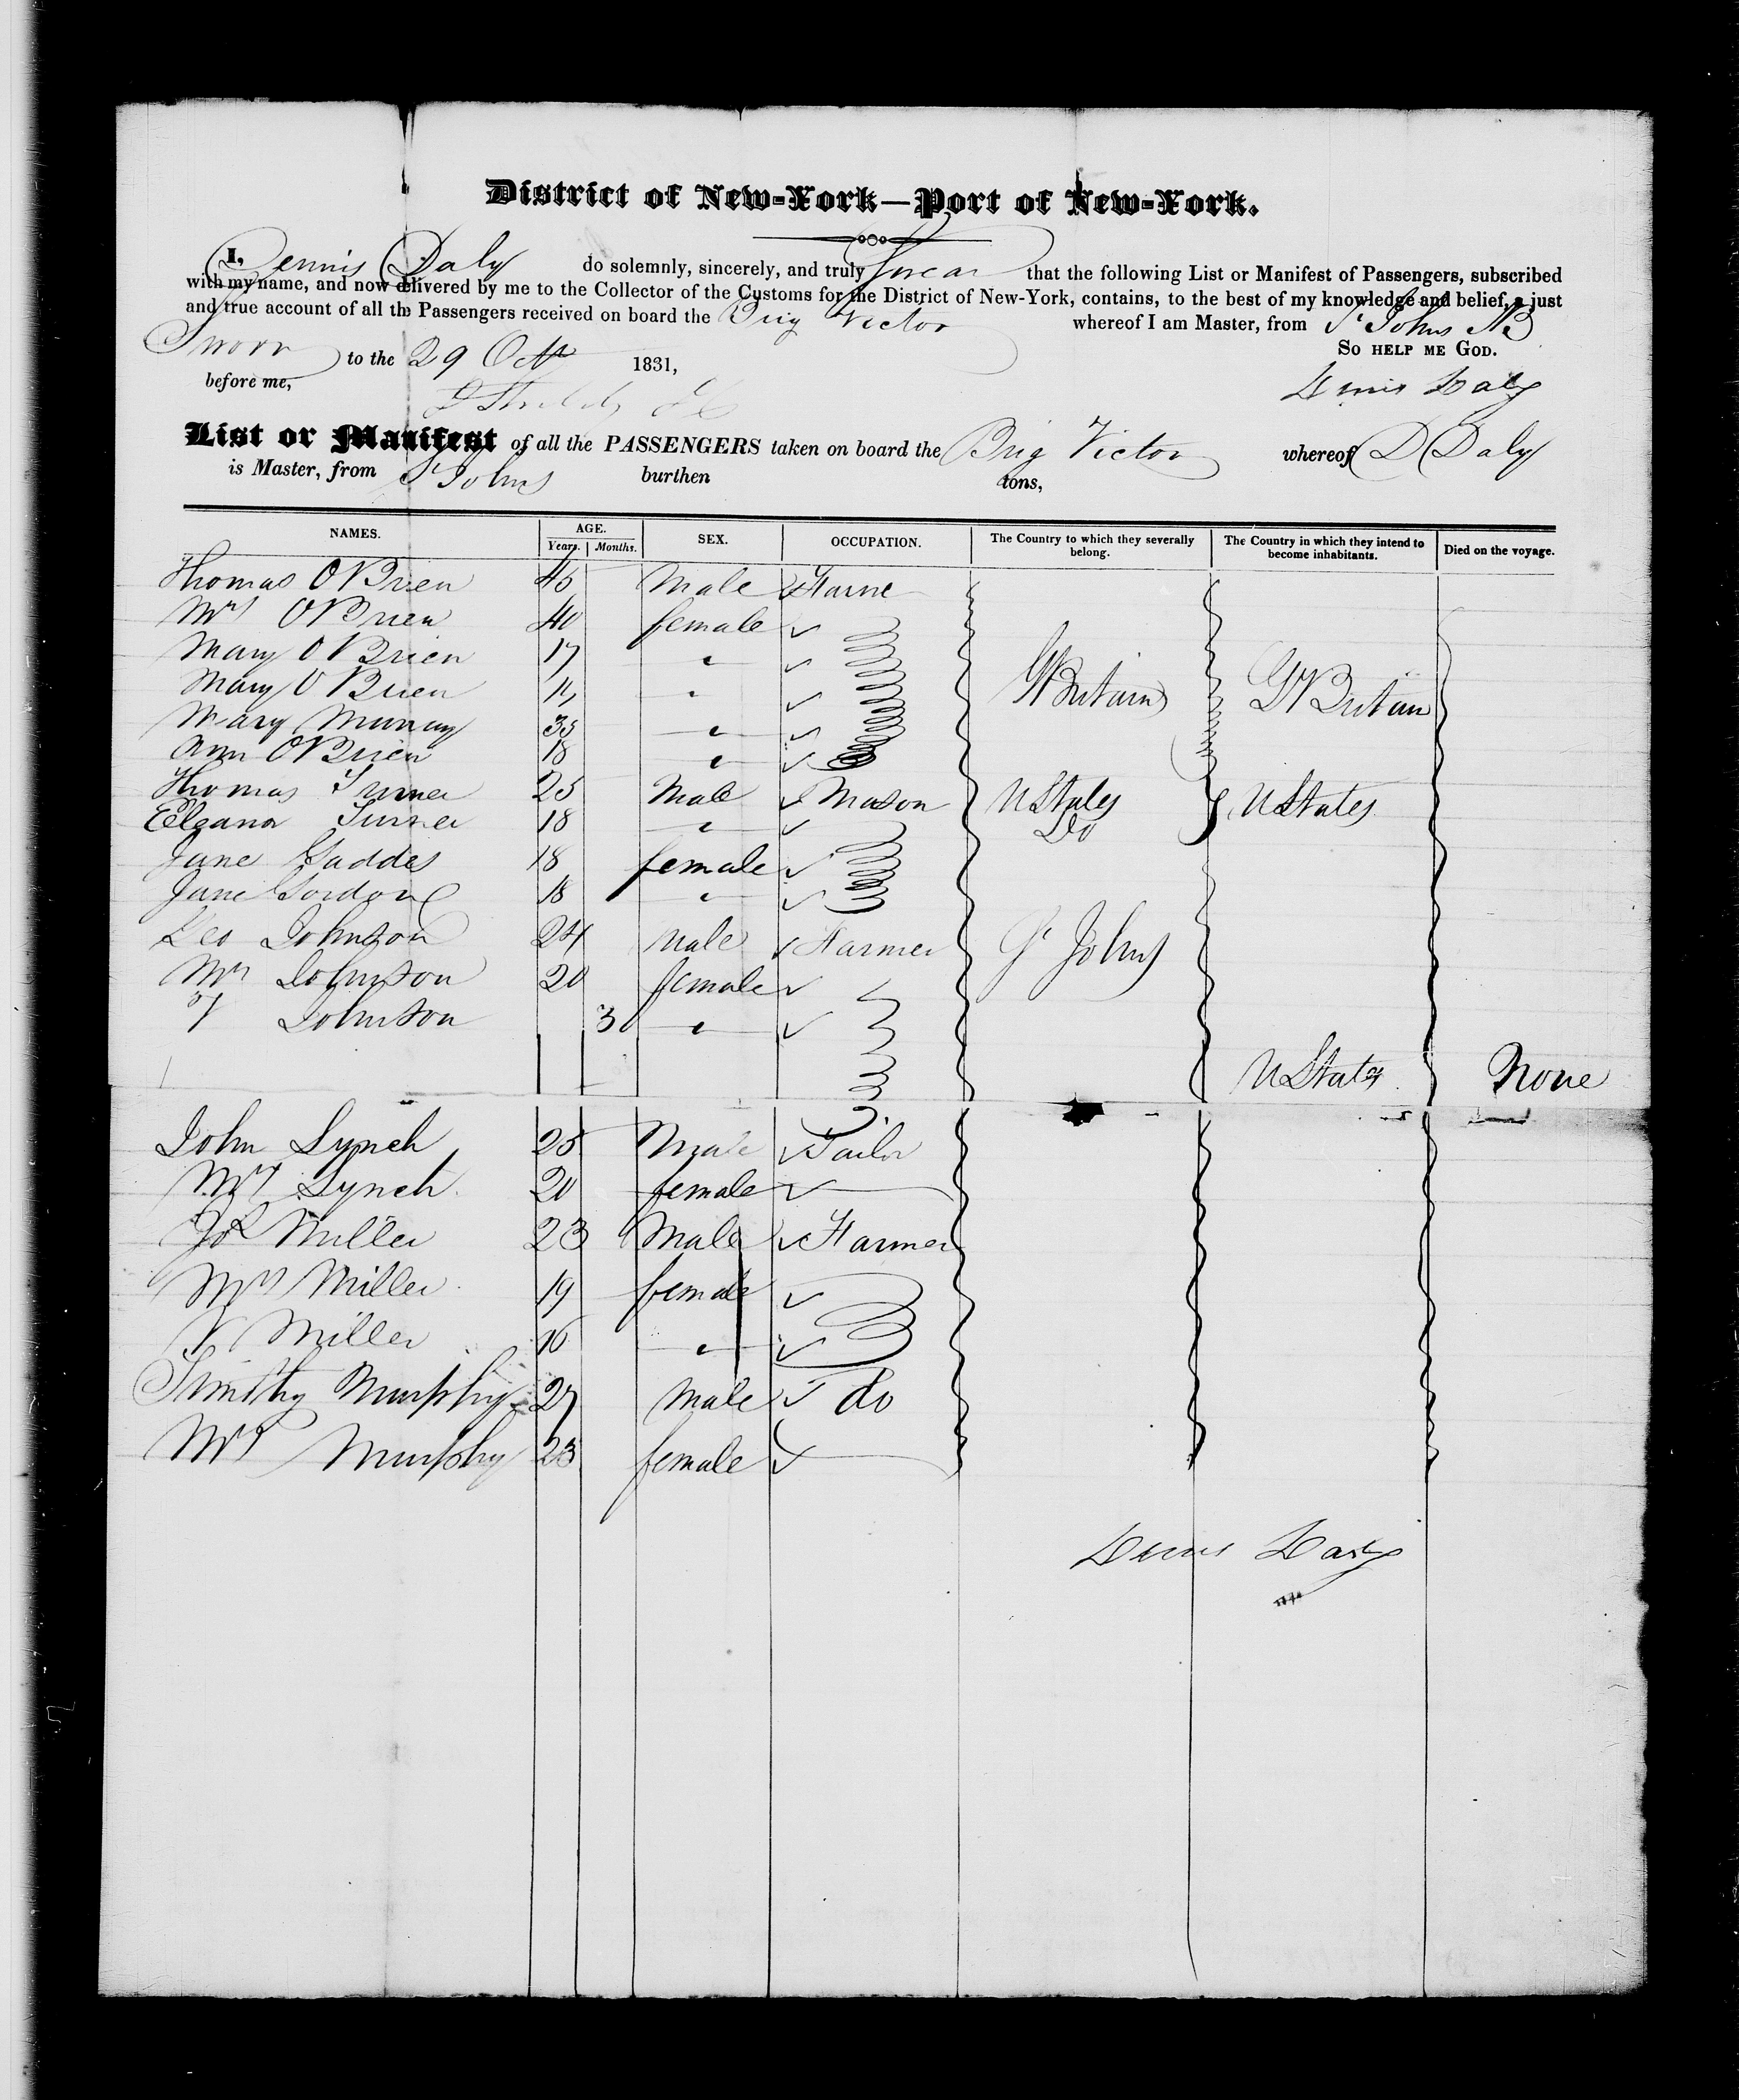 District of New-York—Port of New-York.
I, Dennis Daly do solemnly, sincerely, and truly Swear that the following List or Manifest of Passengers, subscribed
with my name, and now delivered by me to the Collector of the Customs for the District of New-York, contains, to the best of my knowledge and belief, a just
and true account of all the Passengers received on board the Brig Victor whereof I am Master, from St Johns NB
Sworn to the 29 Oct 1831, SO HELP ME GOD.
before me, Dennis Daly
List or Manifest of all the PASSENGERS taken on board the Brig Victor whereof D Daly
is Master, from St Johns burthen tons,
NAMES. AGE. SEX. OCCUPATION. The Country to which they severally belong. The Country in which they intend to become inhabitants. Died on the voyage.
Years. Months.
Thomas OBrien 45 Male Farme
Mrs OBrien 40 female
Mary OBrien 17 "
Mary OBrien "
Mary Murray 35 " GtBritain GtBritain
Ann OBrien 18 "
Thomas Turner 25 Male Mason UStates UStates
Eleanor Turner 18 " Do
Jane Gaddes 18 female
Jane Gordon 18 "
Geo Johnson 24 Male Farmer St Johns
Mrs Johnson 20 female
Johnson 3 "
UStates None
John Lynch 25 Male Tailor
Mrs Lynch 20 female
Miller 23 Male Farmer
Mrs Miller 19 female
Miller 16 "
Timothy Murphy 27 Male do
Mrs Murphy 23 female
Dennis Daly